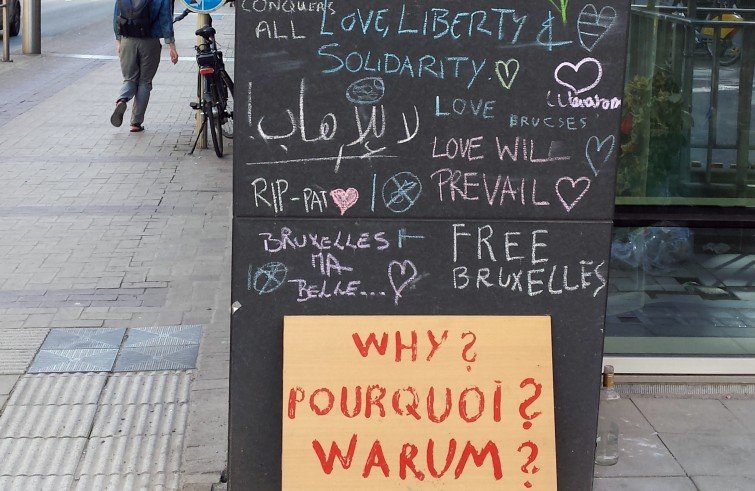 CONQUERS
ALL
LOVE, LIBERTY &
SOLIDARITY.
لا للإرهاب!
LOVE
BRUCSES
LOVE WILL
PREVAIL
RIP-PAT
BRUXELLES
MA
BELLE...
FREE
BRUXELLES
WHY?
POURQUOI?
WARUM?